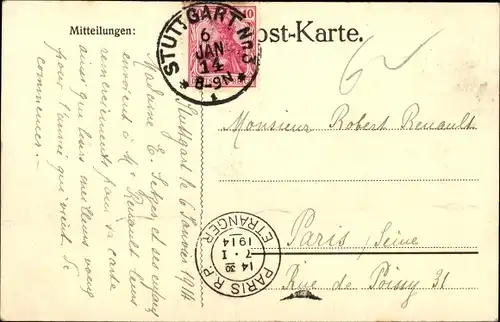 Mitteilungen:
Post-Karte.
10
STUTTGART Nr. 3
6
JAN
14
8-9N
1
62
Stuttgart le 6 Janvier 1914
Madame E. et ses enfants
envoient à Mr Renault leurs
remerciements pour sa carte
ainsi que leurs meilleurs vœux
pour l'année que vient de
commencer. —
Monsieur Robert Renault
Paris /Seine
Rue de Poissy 31
PARIS R.P.
ETRANGER
14 30
7 · I
1914